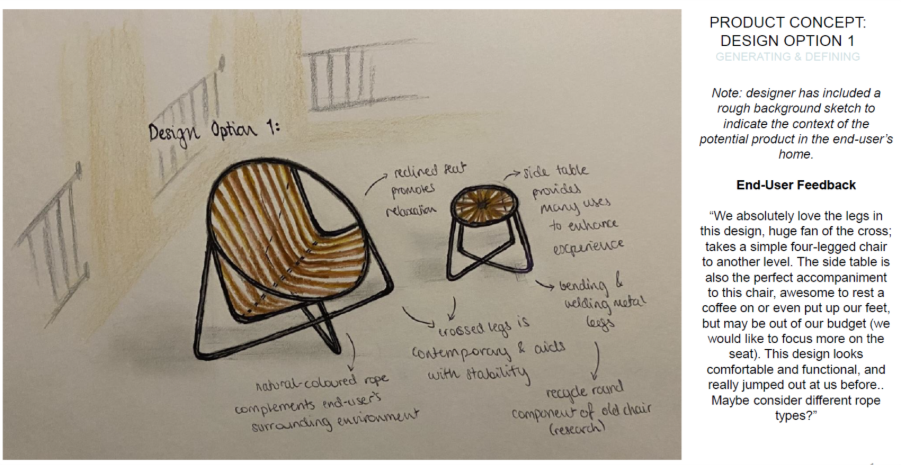 Design Option 1:
reclined seat
promotes
relaxation
side table
provides
many uses
to enhance
experience
bending &
welding metal
legs
crossed legs is
contemporary & aids
with stability
natural-coloured rope
complements end-user's
surrounding environment
recycle round
component of old chair
(research)
PRODUCT CONCEPT:
DESIGN OPTION 1
GENERATING & DEFINING
Note: designer has included a
rough background sketch to
indicate the context of the
potential product in the end-user's
home.
End-User Feedback
“We absolutely love the legs in
this design, huge fan of the cross;
takes a simple four-legged chair
to another level. The side table is
also the perfect accompaniment
to this chair, awesome to rest a
coffee on or even put up our feet,
but may be out of our budget (we
would like to focus more on the
seat). This design looks
comfortable and functional, and
really jumped out at us before..
Maybe consider different rope
types?”